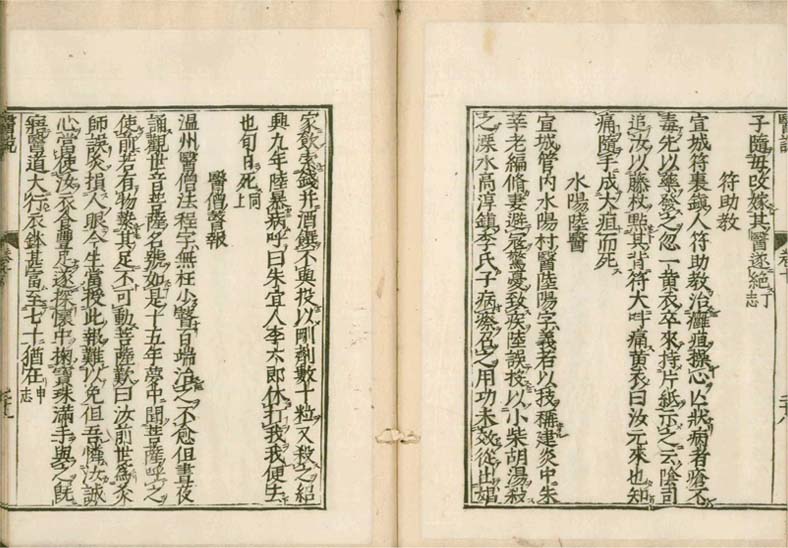 子隨母改嫁其醫遂絕丁志
符助教
宣城符裏鎮人符助教治癰疽操心以狀病者瘡不
毒先以藥發之忽一黃衣卒來持片紙示之云陰司
追汝以藤杖點其背符大呌痛黃衣曰汝元來也知
痛隨手成大疽而死
水陽陸醫
宣城管內水陽村醫陸陽字義若以技稱建炎中朱
莘老編脩妻避寇驚憂致疾陸誤投以小柴胡湯殺
之溧水高淳鎮李氏子病瘵召之用功未效從出娼
家飲索錢并酒饌不與投以剛劑數十粒又殺之紹
興九年陸暴病呼曰朱宜人李六郎休打我我便去
也旬日死同上
醫僧瞽報
温州醫僧法程字無枉小瞽百端治之不愈但晝夜
誦觀世音菩薩名號如是十五年夢中聞菩薩呼之
使前若有物縶其足不可動菩薩歎曰汝前世爲灸
師誤灸損人眼今生當授此報難以免但吾憐汝誠
心當使汝衣食豐足遂探懷中掬寶珠滿手與之既
寤醫道大行衣鉢甚富至七十猶在甲志
醫說